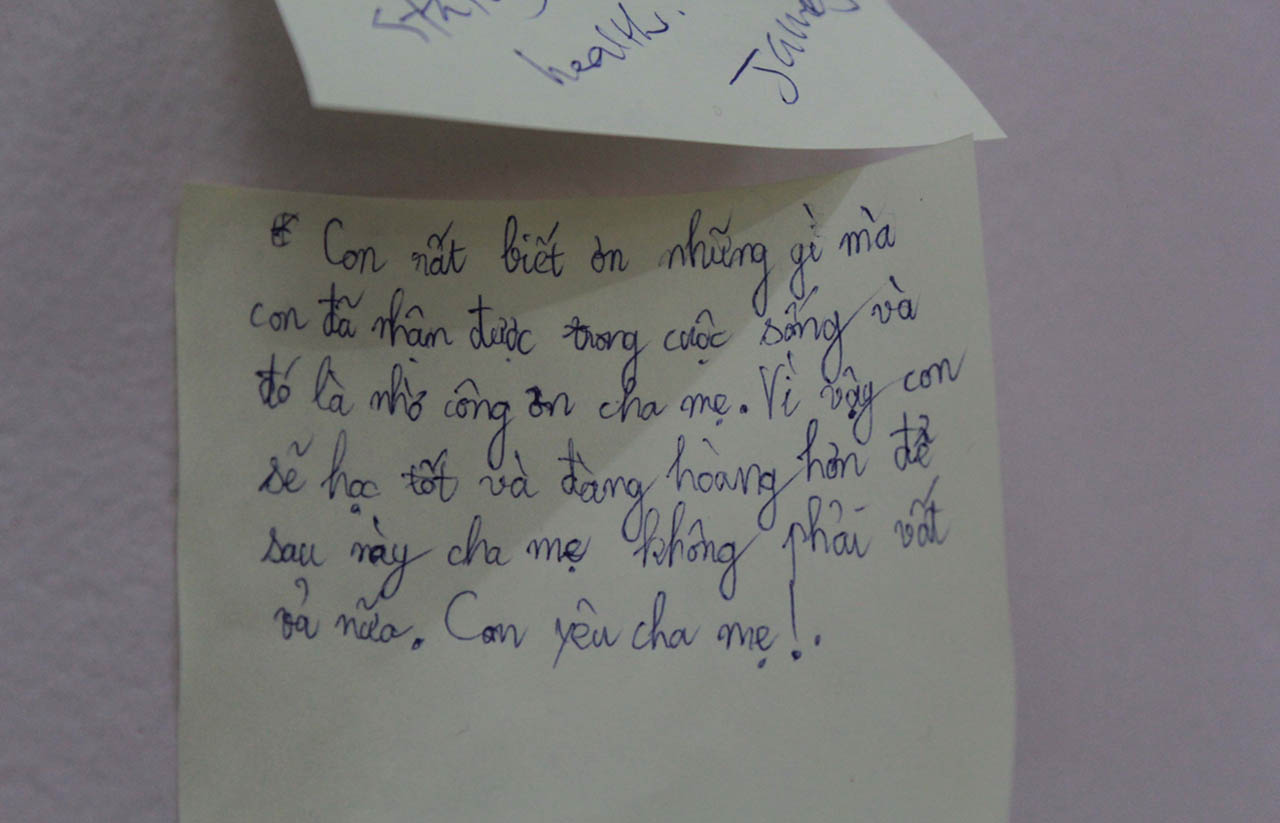 health.
* Con rất biết ơn những gì mà
con đã nhận được trong cuộc sống và
đó là nhờ công ơn cha mẹ. Vì vậy con
sẽ học tốt và đàng hoàng hơn để
sau này cha mẹ không phải vất
vả nữa. Con yêu cha mẹ!.